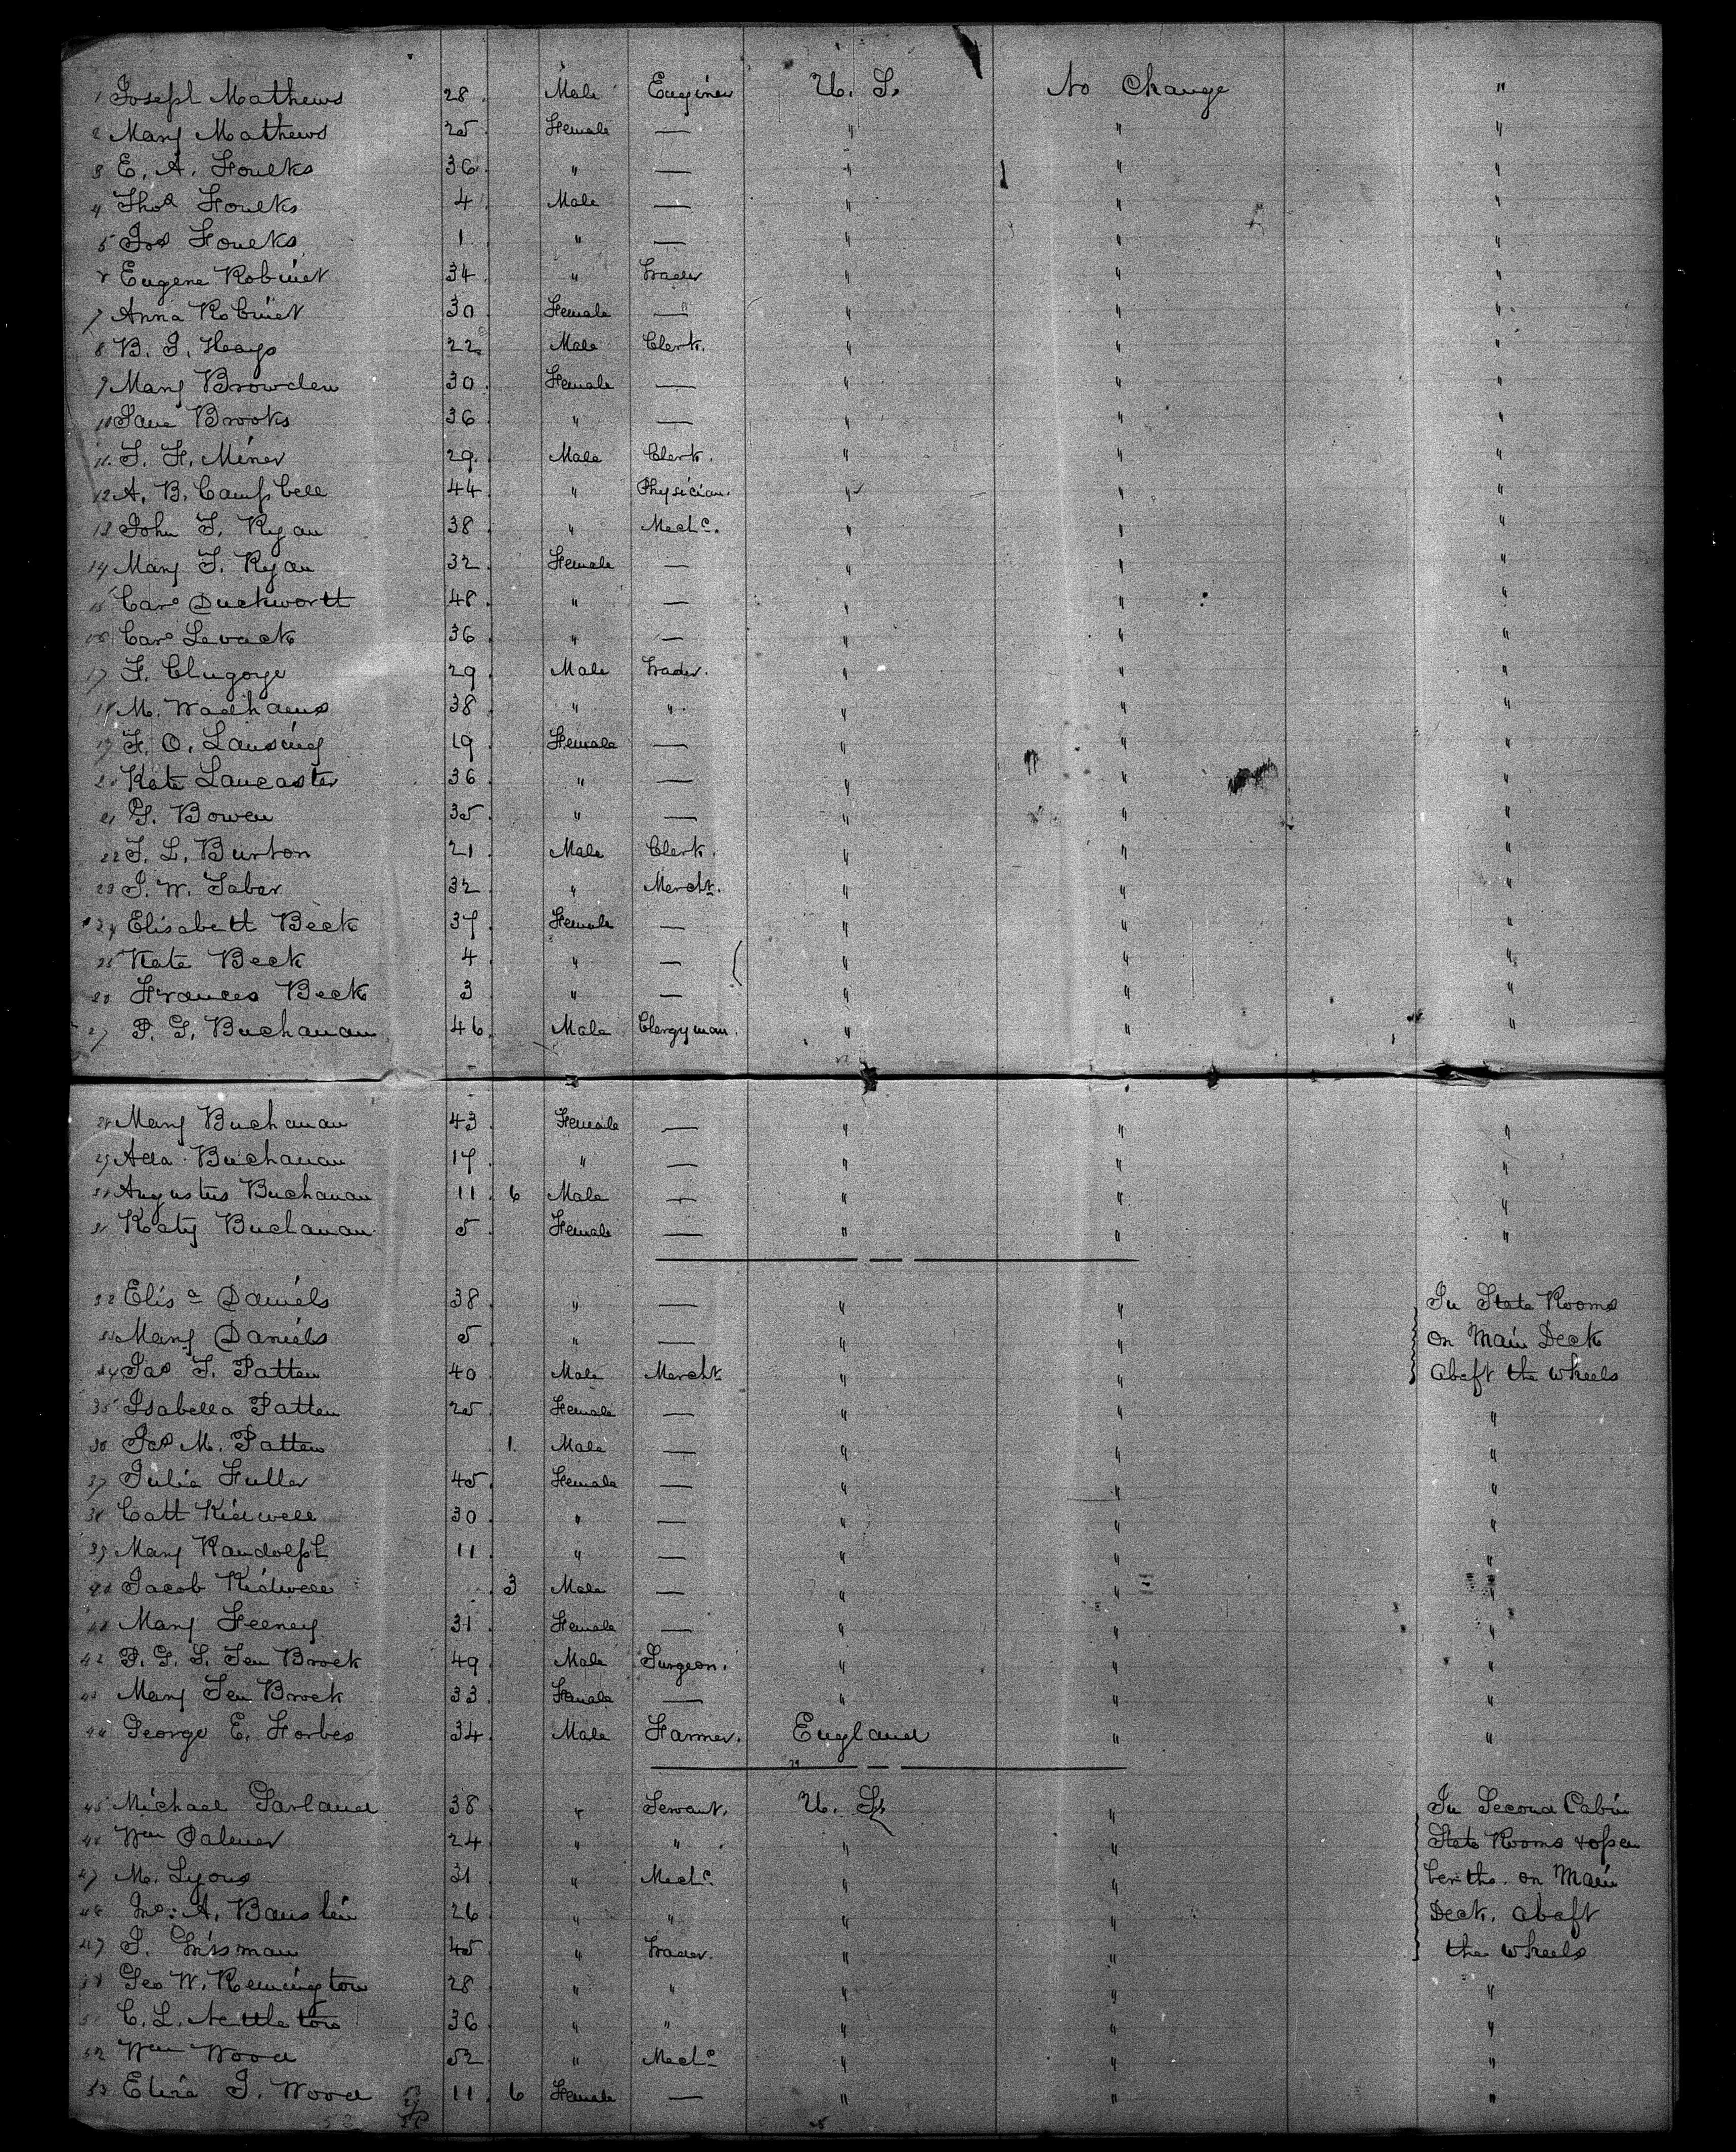 1 Joseph Mathews 28 Male Engineer U. S. No Change "
2 Mary Mathews 25 Female — " " "
3 E. A. Foulks 36 " — " " "
4 Thos Foulks 4 Male — " " "
5 Jos Foulks 1 " — " " "
Eugene Robinet 34 " Trader " " "
7 Anna Robinet 30 Female — " " "
8 B. I. Hays 22 Male Clerk. " " "
9 Mary Browden 30 Female — " " "
10 Jane Brooks 36 " — " " "
11. T. F. Miner 29. Male Clerk. " " "
12 A. B. Campbell 44 " Physician. " " "
13 John T. Ryan 38 " Mechc. " " "
14 Mary T. Ryan 32 Female — " " "
15 Caro Duckworth 48 " — " " "
16 Caro Levack 36 " — " " "
17 F. 29 Male Trader. " " "
18 M. Wadhams 38 " " " " "
19 F. O. Lansing 19 Female — " " "
20 Kate Lancaster 36 " — " " "
21 G. Bowen 35 " — " " "
22 T. L. Burton 21 Male Clerk. " " "
23 J. W. Taber 32 " Mercht. " " "
24 Elisabeth Beck 37 Female — " " "
25 Kate Beck 4 " — " " "
26 Frances Beck 3 " — " " "
27 P. G. Buchanan 46 Male Clergyman. " " "
28 Mary Buchanan 43 Female — " " "
29 Ada Buchanan 17 " — " " "
30 Augustus Buchanan 11 6 Male — " " "
31 Katy Buchanan 5 Female — " " "
32 Elisa Daniels 38 " — " " In State Rooms
33 Mary Daniels 5 " — " " on Main Deck
34 Jas T. Patten 40 Male Mercht " " abaft the wheels
35 Isabella Patten 25 Female — " " "
36 Jas M. Patten 1 Male — " " "
37 Julia Fuller 45 Female — " " "
38 Cath Kidwell 30 " — " " "
39 Mary Randolph 11 " — " " "
40 Jacob Kidwell 3 Male — " " "
41 Mary Feeney 31 Female — " " "
42 P. G. S. Ten Broek 49 Male Surgeon. " " "
43 Mary Ten Broek 33 Female — " " "
44 George E. Forbes 34 Male Farmer. England " "
45 Michael Garland 38 " Servant. U. S. " In Second Cabin
46 Wm Palmer 24 " " " " State Rooms & open
47 M. Lyons 31 " Mechc " " berths. on Main
48 Jno: A. Bauslin 26 " " " " Deck, abaft
J. 45 " Trader. " " the wheels
Geo W. Remington 28 " " " " "
C. L. Nettleton 36 " " " " "
52 Wm Wood 52 " Mechc " " "
53 Eliza J. Wood 11 6 Female — " " "
53